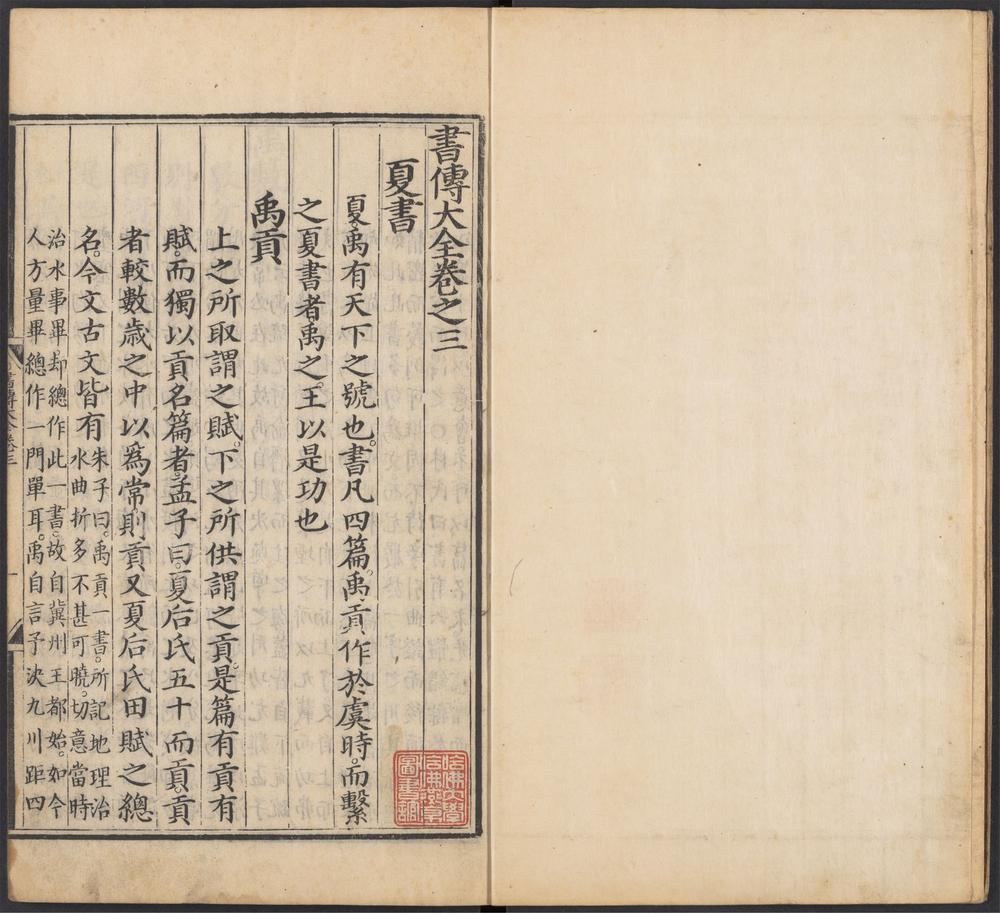 書傳大全卷之三
夏書
夏禹有天下之號也。書凡四篇。禹貢作於虞時。而繫
之夏書者。禹之王以是功也
禹貢
上之所取謂之賦。下之所供謂之貢。是篇有貢有
賦。而獨以貢名篇者。孟子曰。夏后氏五十而貢。貢
者較數歲之中以爲常。則貢又夏后氏田賦之總
名。今文古文皆有
朱子曰。禹貢一書。所記地理治
水曲折多不甚可曉。切意當時
治水事畢。却總作此一書。故自冀州王都始。如今
人方量畢總作一門單耳。禹自言予決九川距四
書傳大全卷三
一
哈佛大學
哈佛燕京
圖書館